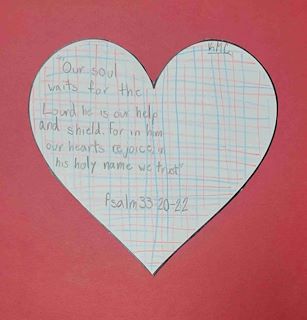 KMG
"Our soul
waits for the
Lourd he is our help
and shield. for in him
our hearts rejoice, in
his holy name we trust"
Psalm 33:20-22